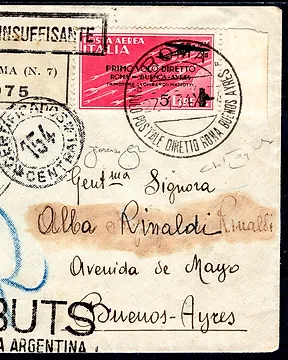 INSUFFISANTE
POSTA AEREA
ITALIA
PRIMO VOLO DIRETTO
ROMA = BUENOS-AYRES
ROMA (N. 7)
075
POSTALE DIRETTO ROMA BUENOS AYRES
CERTIFICADOS
134
CENTRAL
Gent.ma Signora
Alba Rinaldi Rinaldi
Avenida de Mayo
Buenos-Ayres
BUTS
A ARGENTINA